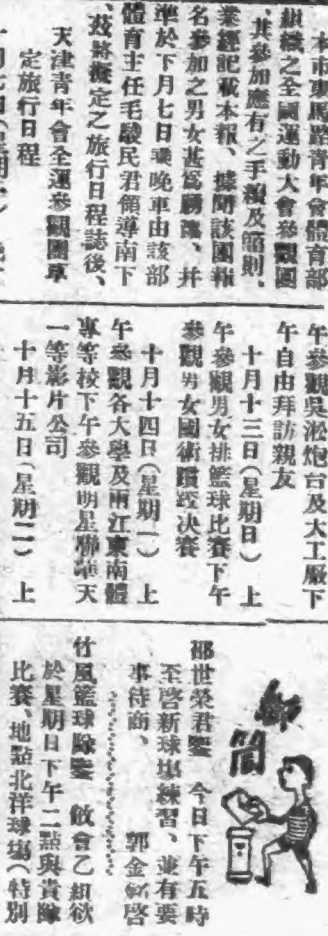 本市東馬路青年會體育部
組織之全國運動大會參觀團
、其參加應有之手續及簡則、
業經記載本報、據聞該團報
名參加之男女甚爲踴躍、并
準於下月七日乘晚車由該部
體育主任毛駿民君領導南下
、茲將擬定之旅行日程誌後、
天津青年會全運參觀團草
定旅行日程
午參觀吳淞炮台及大工廠下
午自由拜訪親友
十月十三日(星期日) 上
午參觀男女排籃球比賽下午
參觀男女國術蹟踁決賽
十月十四日(星期一) 上
午參觀各大學及兩江東南體
專等校下午參觀明星聯華天
一等影片公司
十月十五日(星期二) 上
郵筒
祁世榮君鑒 今日下午五時
至啓新球塲練習、並有要
事待商、 郭金 啓
竹風籃球隊鑒 敝會乙組欲
於星期日下午二點與貴隊
比賽、地點北洋球塲(特別